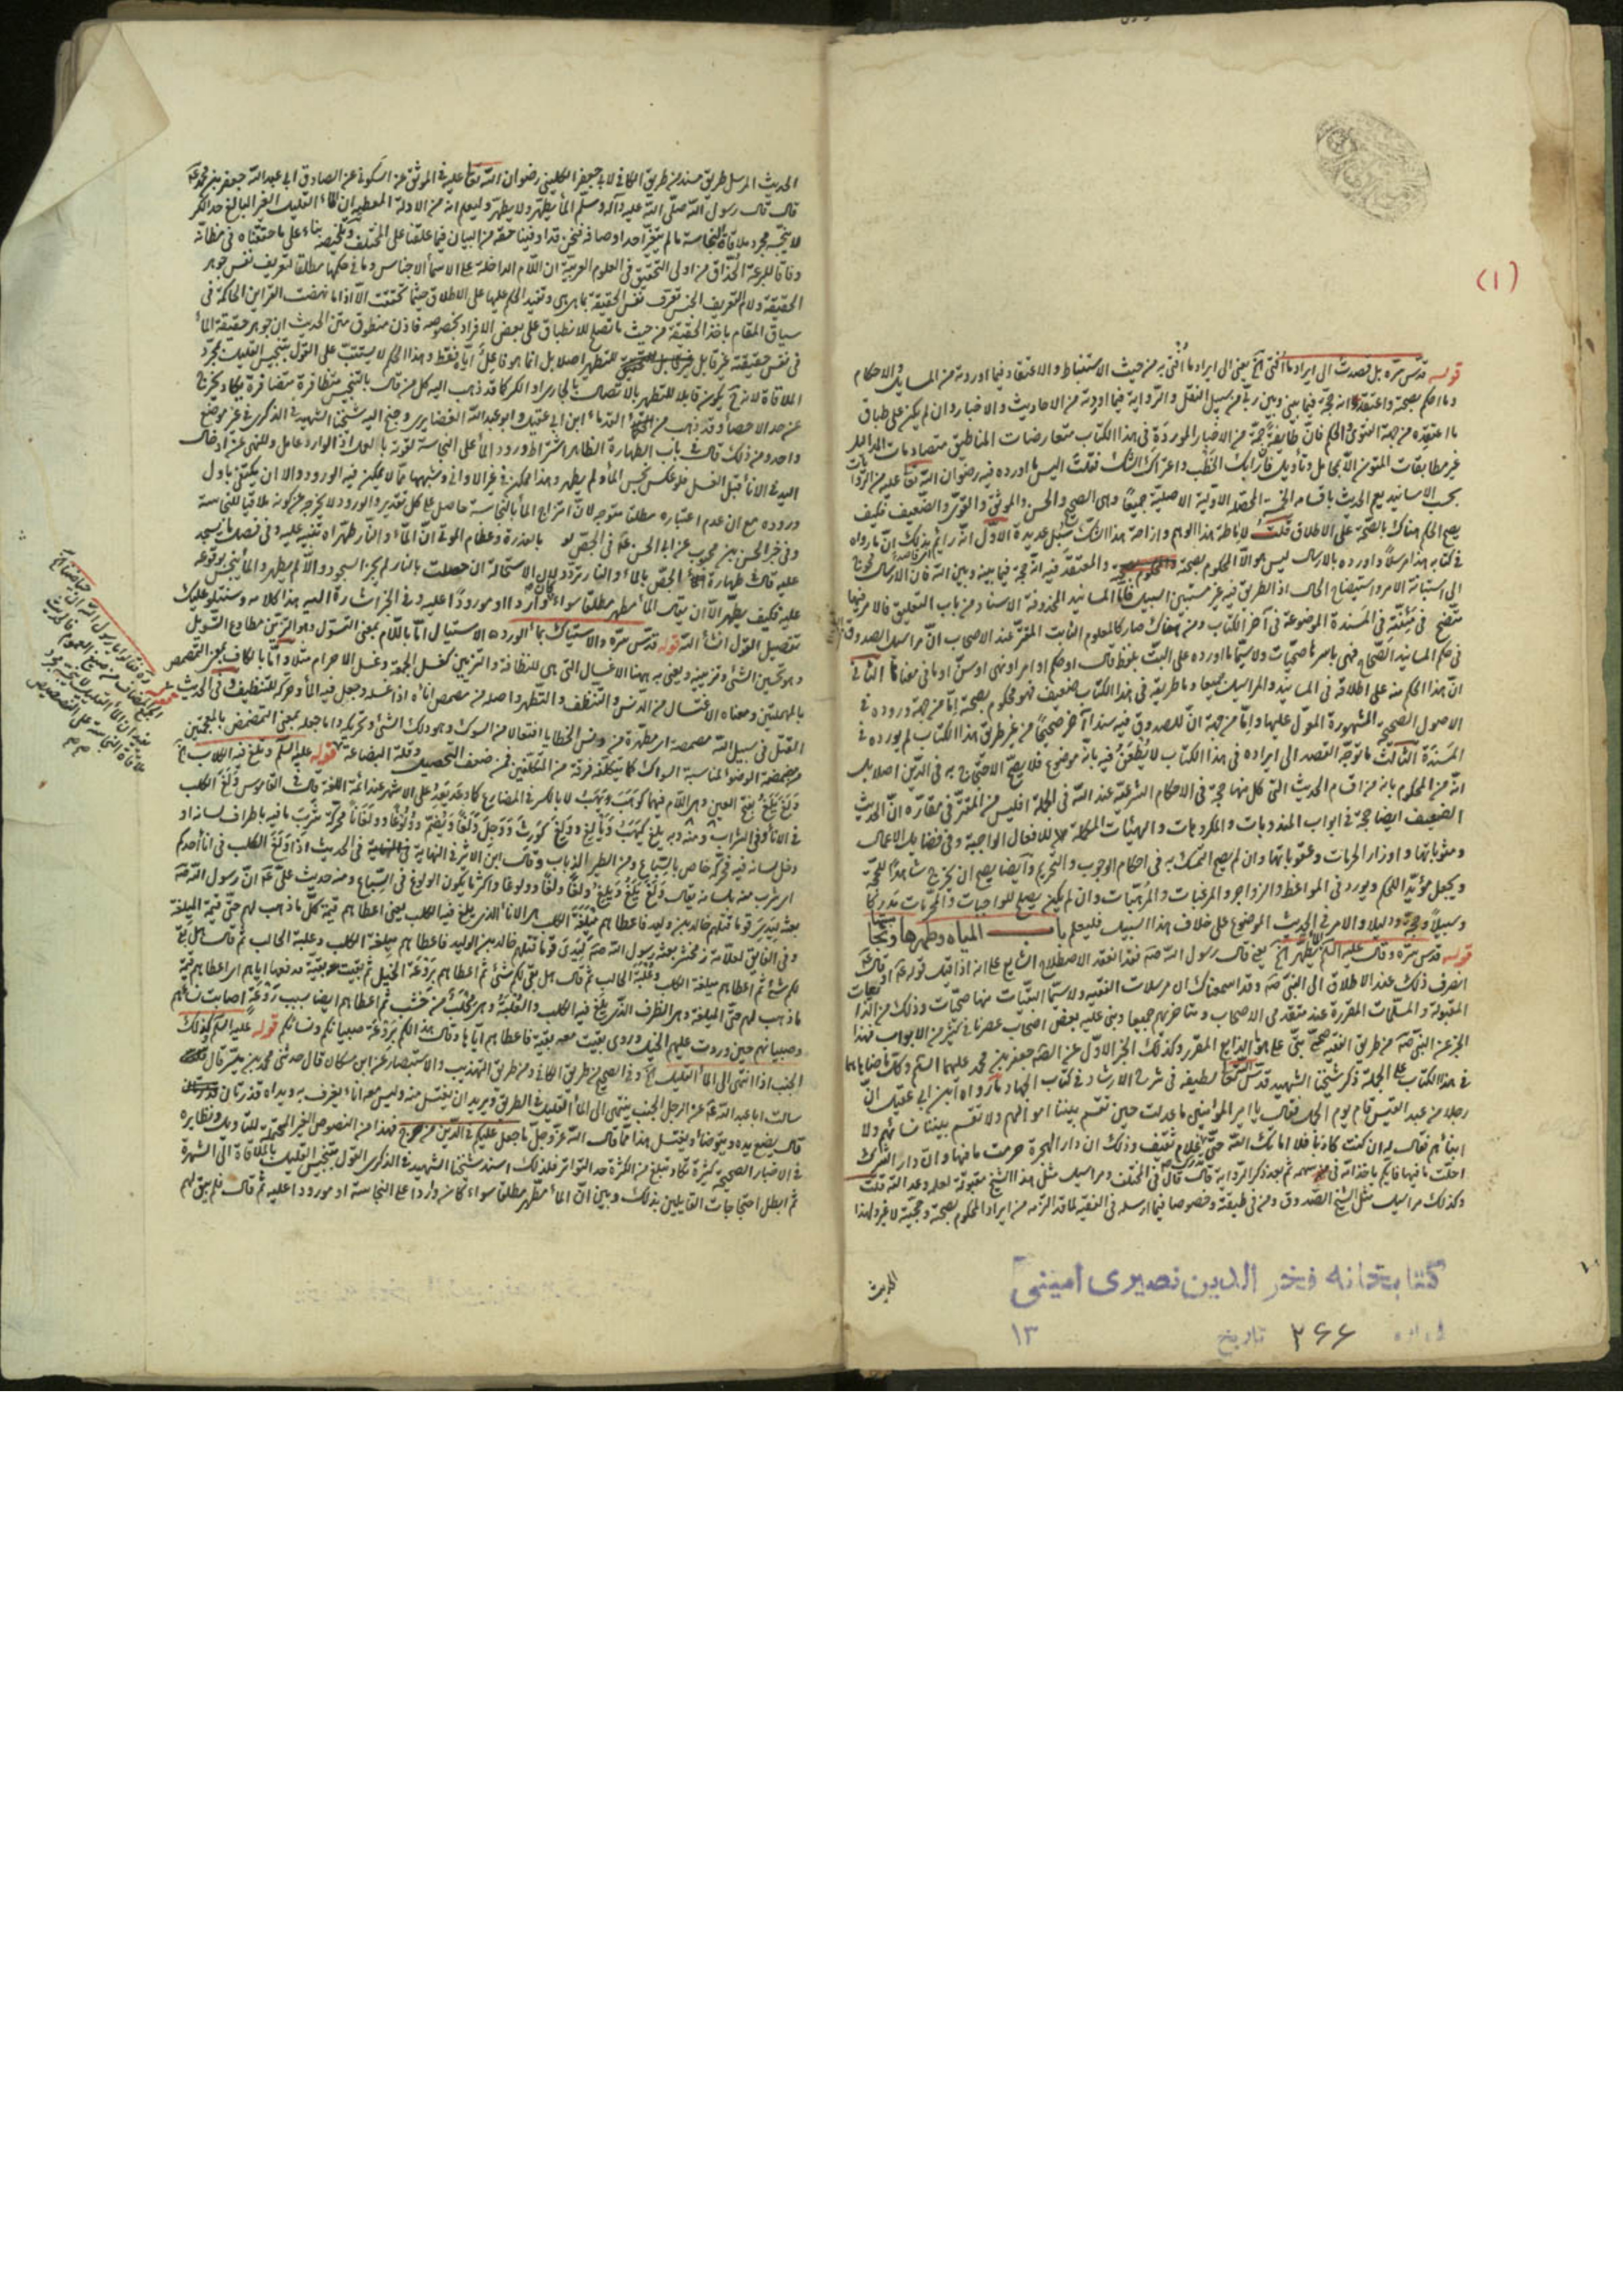 (١)
قوله قدس سره بل قصدت الى ايراد ما افتى به يعنى الى ايراد ما افتى به من حيث الاستنباط والاعتقاد فيما اوردته من المسايل والاحكام
وما احكم بصحته واعتقد انه حجة فيما بينى وبين ربى من سبيل النقل والرواية فيما ارويه من الاحاديث والاخبار وان لم يكن على طباق
ما اعتقده من جهة الفتوى والحكم فان طايفة جمة من الاخبار الموردة فى هذا الكتاب متعارضات المناطيق متصادمات المداليل
غير مطابقات المتون الا بمحامل وتأويل فان رابك الخطب واعتراك الشك فقلت اليس ما اورده فيه رضوان الله تعالى عليه من الروايات
بحسب الاسانيد يعم الحديث باقسامه الخمسة المحصلة الاولية الاصلية جميعا وهى الصحيح والحسن والموثق والقوى والضعيف فكيف
يصح الحكم هناك بالصحة على الاطلاق قلت لاماطة هذا الوهم وازاحة هذا الشك سبل عديدة الاول انه رام بذلك ان ما رواه
فى كتابه هذا مرسلا واورده بالارسال ليس هو الا المحكوم بصحته والمعتقد فيه انه حجة فيما بينه وبين الله فان الارسال محوج
الى استبانة الامر واستيضاح الحال اذ الطريق فيه غير مستبين السبيل فاما المسانيد المحذوفة الاسناد من باب التعليق فالامر فيها
متضح فى مشيخته فى المسندة الموضوعة فى آخر الكتاب ومن هناك صار كالمعلوم الثابت المقرر عند الاصحاب ان مراسيل الصدوق
فى حكم المسانيد الصحاح فهى باسرها صحيحات ولا سيما ما اورده على البت بلفظ قال او حكم او امر او نهى او سن او ما فى معناها الثانى
ان هذا الحكم منه على اطلاقه فى المسانيد والمراسيل جميعا وما طريقه فى هذا الكتاب ضعيف فهو محكوم بصحته اما من جهة وروده فى
الاصول الصحيحة المشهورة المعول عليها واما من جهة ان للصدوق فيه سندا آخر صحيحا من غير طريق هذا الكتاب لم يورده فى
المسندة الثالث ما توجه القصد الى ايراده فى هذا الكتاب لا يطعن فيه بانه موضوع فلا يصح الاحتجاج به فى الدين اصلا بل
انه من المحكوم بانه من اقسام الحديث التى كل منها حجة فى الاحكام الشرعية عند الله فى الجملة افليس من المقرر فى مقاره ان الحديث
الضعيف ايضا حجة فى ابواب المندوبات والمكروهات والهيئات المكملة للافعال الواجبة وفى فضايل الاعمال
ومثوباتها واوزار المحرمات وعقوباتها وان لم يصح التمسك به فى احكام الوجوب والتحريم وايضا يصح ان يخرج شاهدا للحجة
ويجعل مؤيدا للحكم ويورد فى المواعظ والزواجر والمرغبات والمرهبات وان لم يكن يصلح للواجبات والمحرمات مدركا
وسبيلا وحجة ودليلا والامر فى الحديث الموضوع على خلاف هذا السبيل فليعلم باب المياه وطهرها ونجاستها
قوله قدس سره وقال عليه السلم الماء يطهر الخ يعنى قال رسول الله صه فقد انعقد الاصطلاح الشايع على انه اذا قيل قوله عه او قال عه
انصرف ذلك عند الاطلاق الى النبى صه وقد اسمعناك ان مرسلات الفقيه ولا سيما البتيات منها صحيحات وذلك من الذايعات
المقبولة والمسلمات المقررة عند متقدمى الاصحاب ومتاخريهم جميعا وبنى عليه بعض اصحاب عصرنا فى كثير من الابواب فهذا
الخبر عن النبى صه من طريق الفقيه صحيح بتى على هو الذايع المقرر وكذلك الخبر الاول عن الصه جعفر بن محمد عليهما السلم وكل ما ضاهاهما
فى هذا الكتاب على الجملة ذكر شيخنا الشهيد قدس الله لطيفه فى شرح الارشاد فى كتاب الجهاد ما رواه ابن ابى عقيل ان
رجلا من عبد القيس قام يوم الجمل فقال يا امير المؤمنين ما عدلت حين تقسم بيننا اموالهم ولا تقسم بيننا نسائهم ولا
ابنائهم فقال له ان كنت كاذبا فلا اماتك الله حتى تدرك غلام ثقيف وذلك ان دار الهجرة حرمت ما فيها وان دار الشرك
احلت ما فيها فايكم ياخذ امه فى سهمه ثم بعد ذكر الرواية قال قال فى المختلف ومراسيل مثل هذا الشيخ مقبولة لعلمه وعدالته قلت
وكذلك مراسيل مثل الشيخ الصدوق ومن فى طبقته وخصوصا فيما ارسله فى الفقيه لما قد التزمه من ايراد المحكوم بصحته وحجيته لا غير ولهذا
الحديث
كتابخانه فخر الدين نصيرى امينى
شماره ٢۶۶ تاريخ ١٣
الحديث المرسل طريق مسند من طريق الكافى لابى جعفر الكلينى رضوان الله تعا عليه فى الموثق عن السكونى عن الصادق ابى عبد الله جعفر بن محمد عه
قال قال رسول الله صلى الله عليه وآله وسلم الماء يطهر ولا يطهر وليعلم انه من الادلة المعطية ان الماء القليل الغير البالغ حد الكر
لا ينجسه مجرد ملاقاة النجاسة ما لم يتغير احد اوصافه فنحن قد اوفينا حقه من البيان فيما علقنا على المختلف وتلخيصه بناء على ما حققناه فى مظانه
وفاقا للمرعة الحذاق من اولى التحقيق فى العلوم العربية ان اللام الداخلة على الاسماء الاجناس وما فى حكمها مطلقا لتعريف نفس جوهر
الحقيقة ولام التعريف الجنس تعرف نفس الحقيقة بما هى هى وتفيد الحكم عليها على الاطلاق حيثما تحققت الا اذا ما نهضت القراين الحاكمة فى
سياق المقام باخذ الحقيقة من حيث ما تصلح للانطباق على بعض الافراد بخصوصه فاذن منطوق متن الحديث ان جوهر حقيقة الماء
فى نفس حقيقته غير قابل للتطهر اصلا بل انما هو فاعل اياه فقط وهذا الحكم لا يستتب على القول بتنجيس القليل بمجرد
الملاقاة لانه ح يكون قابلا للتطهر بالاتصال بالجارى او الكر كما قد ذهب اليه كل من قال بالتنجيس متظافرة متضافرة يكاد يخرج
عن حد الاحصاء وقد ذهب من القدماء ابن ابى عقيل وابو عبد الله الغضايرى وجنح اليه شيخنا الشهيد فى الذكرى فى غير موضع
واحد ومن ذلك قال فى باب الطهارة الظاهر اشتراط ورود الماء على النجاسة لقوته بالعمل اذ الوارد عامل وللنهى عن ادخال
اليد فى الاناء قبل الغسل فلو عكس نجس الماء ولم يطهر وهذا ممكن فى غير الاوانى وشبهها مما لا يمكن فيه الورود والا ان يكتفى باول
وروده مع ان عدم اعتباره مطلقا متوجه لان امتزاج الماء بالنجاسة حاصل على كل تقدير والورود لا يخرجه عن كونه ملاقيا للنجاسة
وفى خبر الحسن بن محبوب عن ابى الحسن عه فى الجص بالعذرة وعظام الموتى ان الماء والنار طهراه تنبيه عليه وفى فصل ما يسجد
عليه قال طهارة الجص بالماء والنار تردد لان الاستحالة ان حصلت بالنار لم يجز السجود والا لم يطهر والماء ينجس بوقوعه
عليه فكيف يطهر الا ان يقال الماء مطهر مطلقا سواء كان واردا او مورودا عليه وفى الخبر اشارة اليه هذا كلامه وسنتلو عليك
تفصيل القول انشاء الله قوله قدس سره والاستياك بماء الورد الاستيال اما باللام بمعنى التسول وهو التزين مطاوع التسويل
وهو تحسين الشئ وتزيينه ويعنى به ههنا الاغسال التى هى للنظافة والتزيين كغسل الجمعة وغسل الاحرام مثلا واما بالكاف بمعنى التمصمص
بالمهملتين ومعناه الاغتسال من الدنس والتنظف والتطهر واصله من مصمص اناه اذا غسله وجعل فيه الماء وحركه للتنظيف وفى الحديث
القتل فى سبيل الله مصمصة اى مطهرة من دنس الخطايا افتعالا من السوك وهو دلك الشئ وتحريكه واما جعله بمعنى التمضمض بالمعجمتين
من مضمضة الوضوء لمناسبة السواك كما يتكلفه فرقة من المتكلفين فمن ضعف التحصيل وقلة البضاعة قوله عليه السلم ولغ فيه الكلاب الخ
ولغ يلغ بفتح العين وهى اللام فيهما كوهب ويهب لا بالكسر فى المضارع كاوعد يعد على الاشهر عند ائمة اللغة قال فى القاموس ولغ الكلب
فى الاناء وفى الشراب ومنه وبه يلغ كيهب ويالغ وولغ كورث ووجل ولغا ويضم وولوغا وولغانا محركة شرب ما فيه باطراف لسانه او
دخل لسانه فيه فحركه خاص بالسباع ومن الطير الذباب وقال ابن الاثير فى النهاية فى الحديث اذا ولغ الكلب فى اناء احدكم
اى شرب منه بلسانه يقال ولغ يلغ ويلغ ولغا وولوغا واكثر ما يكون الولوغ فى السباع ومنه حديث على عه ان رسول الله صه
بعثه ليدى قوما قتلهم خالد بن وليد فاعطاهم ميلغة الكلب هى الاناء الذى يلغ فيه الكلب يعنى اعطاهم قيمة كل ما ذهب لهم حتى قيمة الميلغة
وفى الفايق لعلامة زمخشر بعثه رسول الله صه ليدى قوما قتلهم خالد بن الوليد فاعطاهم ميلغة الكلب وعلبة الحالب ثم قال هل بقى
لكم شئ ثم اعطاهم ميلغة الكلب وعلبة الحالب ثم قال هل بقى لكم شئ ثم اعطاهم بروعة الخيل ثم بقيت معه بقية فدفعها اياهم اى اعطاهم قيمة
ما ذهب لهم حتى الميلغة وهى الظرف الذى يلغ فيه الكلب والعلبة وهى محلب من خشب ثم اعطاهم ايضا بسبب روعة اصابت نسائهم
وصبيانهم حين وردت عليهم الخيل وروى بقيت معه بقية فاعطاهم اياها وقال هذا لكم بروعة صبيانكم ونسائكم قوله عليه السلم وكذلك
الجنب اذا انتهى الى الماء القليل الخ وفى الصحيح من طريق الكافى ومن طريق التهذيب والاستبصار عن ابن مسكان قال حدثنى محمد بن ميسر قال
سالت ابا عبد الله عه عن الرجل الجنب ينتهى الى الماء القليل فى الطريق ويريد ان يغتسل منه وليس معه اناء يغرف به ويداه قذرتان
قال يضع يده ويتوضأ ويغتسل هذا مما قال الله عز وجل ما جعل عليكم فى الدين من حرج فهذا من النصوص الغير المحتملة للتاويل ونظايره
فى الاخبار الصحيحة كثيرة تكاد تبلغ من الكثرة حد التواتر فلذلك اسند شيخنا الشهيد فى الذكرى القول بتنجيس القليل بالملاقاة الى الشهرة
ثم ابطل احتجاجات القايلين بذلك وبين ان الماء مطهر مطلقا سواء كان واردا على النجاسة او مورودا عليه ثم قال فلم يبق لهم